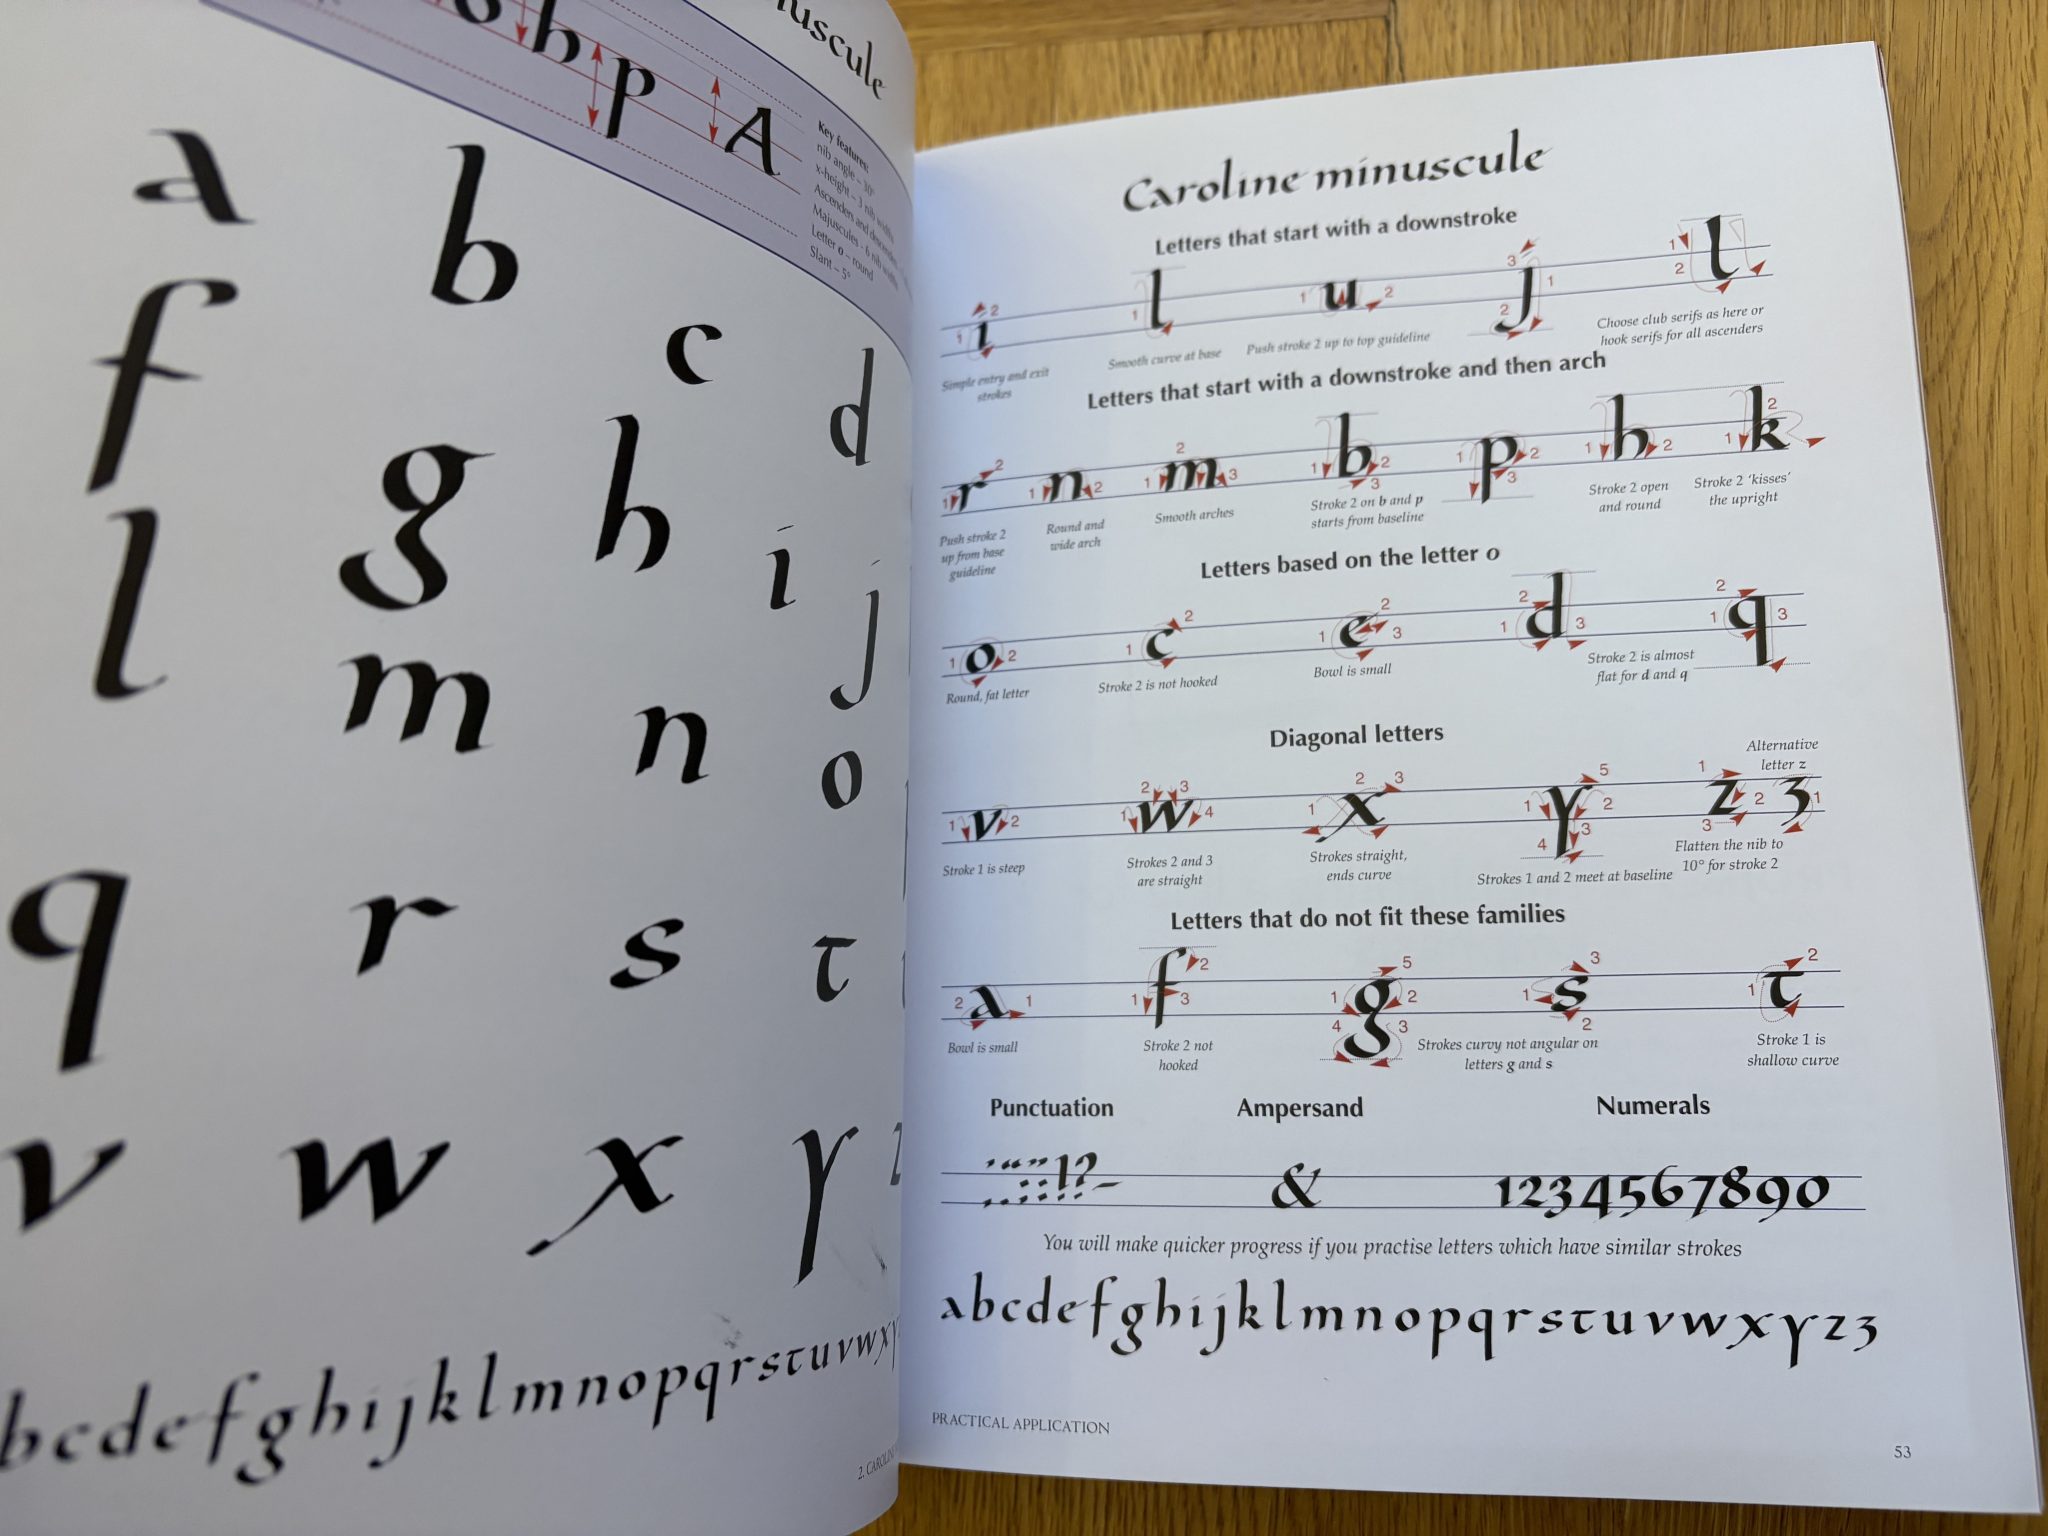 uscule
b p A
Key features:
nib angle – 30°
x-height – 3 nib widths
Ascenders and descenders
Majuscules – 6 nib widths
Letter o – round
Slant – 5°
a b
c d
f g h
i j
l m n o
q r s t
v w x y z
bcdefghijklmnopqrstuvwxy
2. CAROLINE
Caroline minuscule
Letters that start with a downstroke
1 i 2 1 l 1 u 2 3 j 1 2 1 2 l
Simple entry and exit strokes
Smooth curve at base
Push stroke 2 up to top guideline
Choose club serifs as here or
hook serifs for all ascenders
Letters that start with a downstroke and then arch
1 r 2 1 n 2 1 2 m 3 1 b 2 3 1 p 2 3 1 h 2 1 k 2
Push stroke 2
up from base
guideline
Round and
wide arch
Smooth arches
Stroke 2 on b and p
starts from baseline
Stroke 2 open
and round
Stroke 2 ‘kisses’
the upright
Letters based on the letter o
1 o 2 1 c 2 1 e 2 3 2 1 d 3 2 1 q 3
Round, fat letter
Stroke 2 is not hooked
Bowl is small
Stroke 2 is almost
flat for d and q
Diagonal letters
Alternative
letter z
1 v 2 1 2 w 3 4 1 2 x 3 1 y 5 2 3 4 1 z 2 3 z 1
Stroke 1 is steep
Strokes 2 and 3
are straight
Strokes straight,
ends curve
Strokes 1 and 2 meet at baseline
Flatten the nib to
10° for stroke 2
Letters that do not fit these families
2 a 1 1 f 2 3 1 g 5 2 4 3 1 s 3 2 1 t 2
Bowl is small
Stroke 2 not
hooked
Strokes curvy not angular on
letters g and s
Stroke 1 is
shallow curve
Punctuation Ampersand Numerals
!? & 1234567890
You will make quicker progress if you practise letters which have similar strokes
abcdefghijklmnopqrstuvwxyzz
PRACTICAL APPLICATION
53